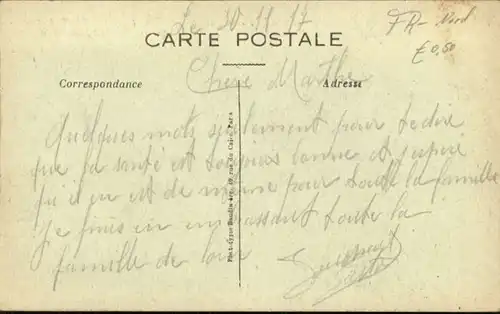 Le 20.11.17
FR- Nord
CARTE POSTALE
€ 0,50
Chere Marthe
Correspondance
Adresse
Quelques mots seulement pour te dire
que la santé est toujours bonne et espère
qu'il en est de même pour toute la famille
je finis en embrassant toute la
famille de loin